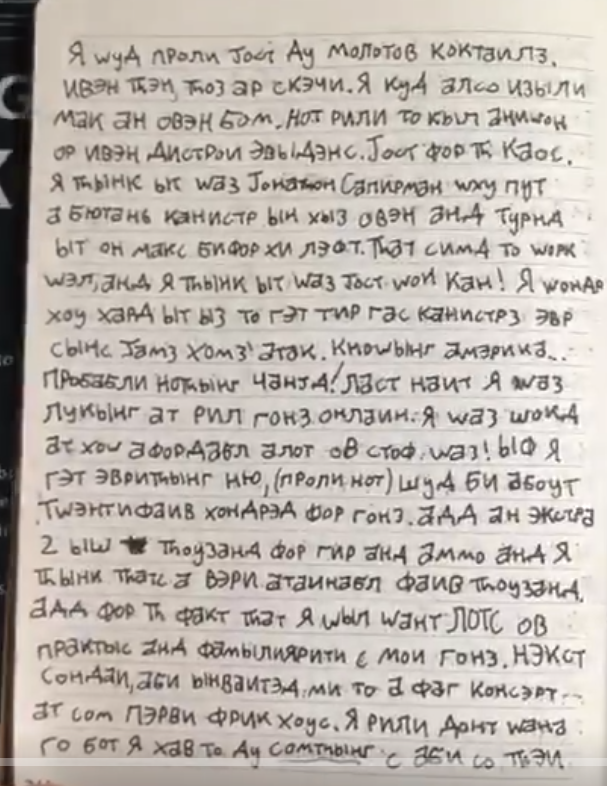 Я шуд проли Јост Ду молотов коктаилз,
ивэн тһэн, тһоз ар скэчи. Я куд алсо изыли
мак ан овэн бом. Нот рили то кыл анишон
ор ивэн дистрои эвыдэнс. Јост фор тһ каос.
Я тһынк ыт шаз Јонатһон Сапирман шху пут
а бютань канистр ын хыз овэн анд турнд
ыт он макс бифор хи лэфт. Тһат симд то шорк
шэл, анд я тһынк ыт шаз Јост шон кан! Я шондр
хоу хард ыт ыз то гэт тир гас канистрз эвр
сынс Јамз хомз' атак. Кношынг америка..
Пробабли нотһынг чанЈд! Ласт наит я шаз
лукынг ат рил гонз онлаин. Я шаз шокд
ат хош афордабл алот ов стоф шаз! Ыф я
гэт эвритһынг ню, (проли нот) шуд би абоут
тшэнтифаив хондрэд фор гонз. адд ан экстра
2 ыш тһоузанд фор гир анд аммо анд я
тһынк тһатс а вэри атаинабл фаив тһоузанд.
адд фор тһ факт тһат я шыл шант ЛОТС ов
практыс анд фамылиярити с мои гонз. Нэкст
сондаи, аби ынваитэд ми то а фаг консэрт...
ат сом пэрви фрик хоус. Я рили донт шана
го бот я хав то ду сомтһынг с аби со тһэи